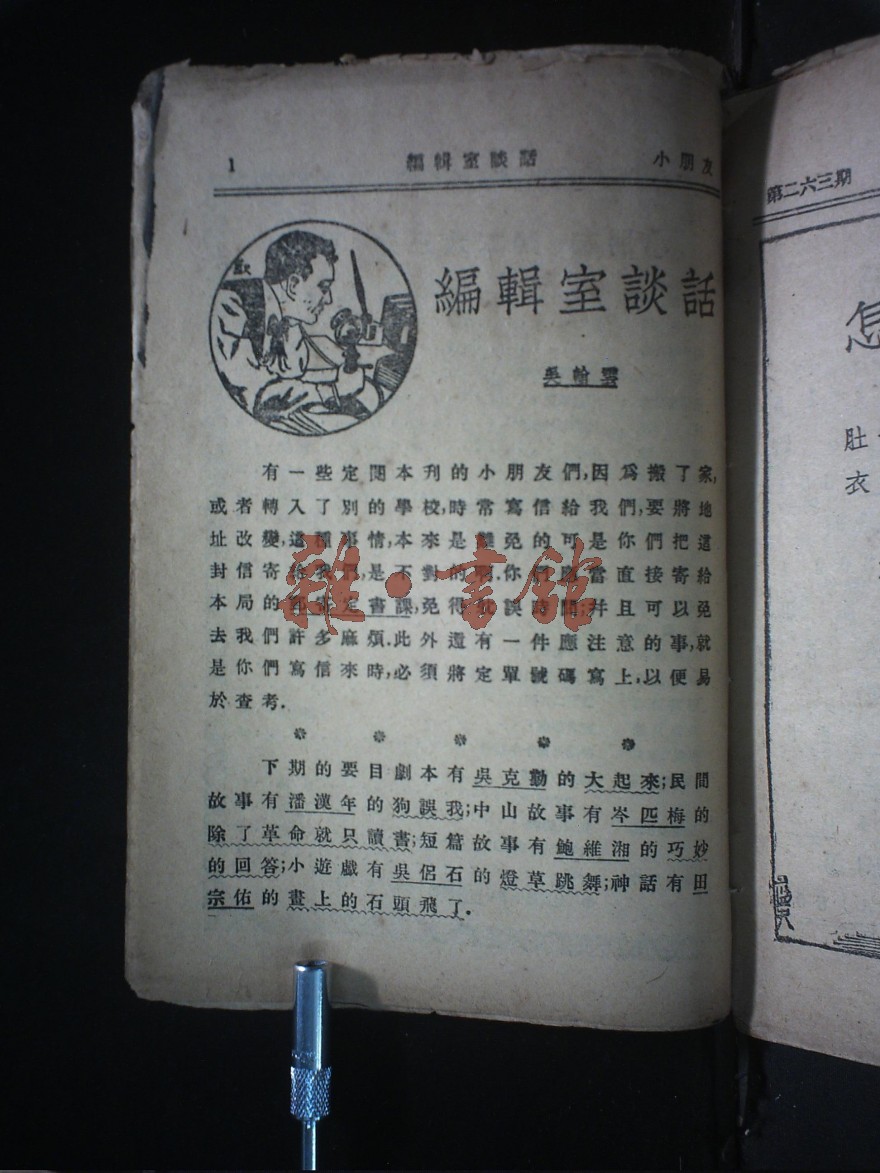 1 編輯室談話 小朋友
編輯室談話
吳翰雲
有一些定閱本刊的小朋友們,因爲搬了家,
或者轉入了別的學校,時常寫信給我們,要將地
址改變,這種事情,本來是難免的可是你們把這
封信寄給我們,是不對的啊.你們應當直接寄給
本局的郵寄定書課,免得就誤時間;并且可以免
去我們許多麻煩.此外還有一件應注意的事,就
是你們寫信來時,必須將定單號碼寫上,以便易
於查考.
下期的要目劇本有吳克勤的大起來;民間
故事有潘漢年的狗誤我;中山故事有岑匹梅的
除了革命就只讀書;短篇故事有鮑維湘的巧妙
的回答;小遊戲有吳侶石的燈草跳舞;神話有田
宗佑的畫上的石頭飛了.
雜·書館
第二六三期
怎
肚
衣